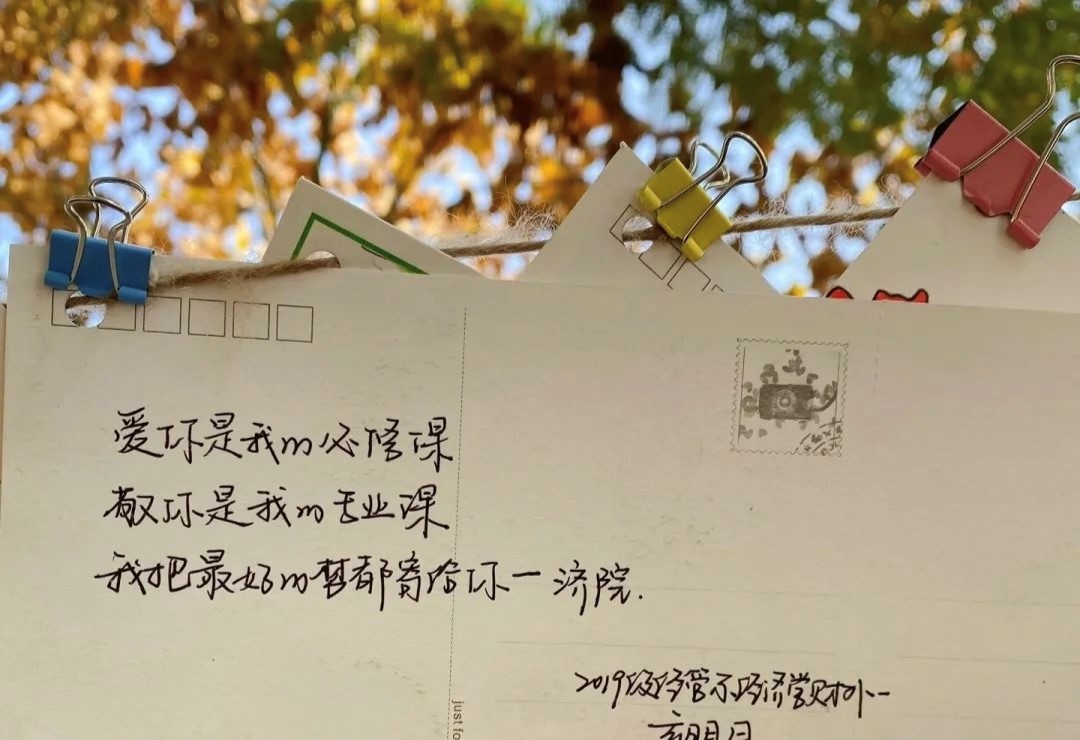 爱你是我的必修课
敬你是我的专业课
我把最好的梦都寄给你一济院.
2019级经管系经济学财外一
just fo